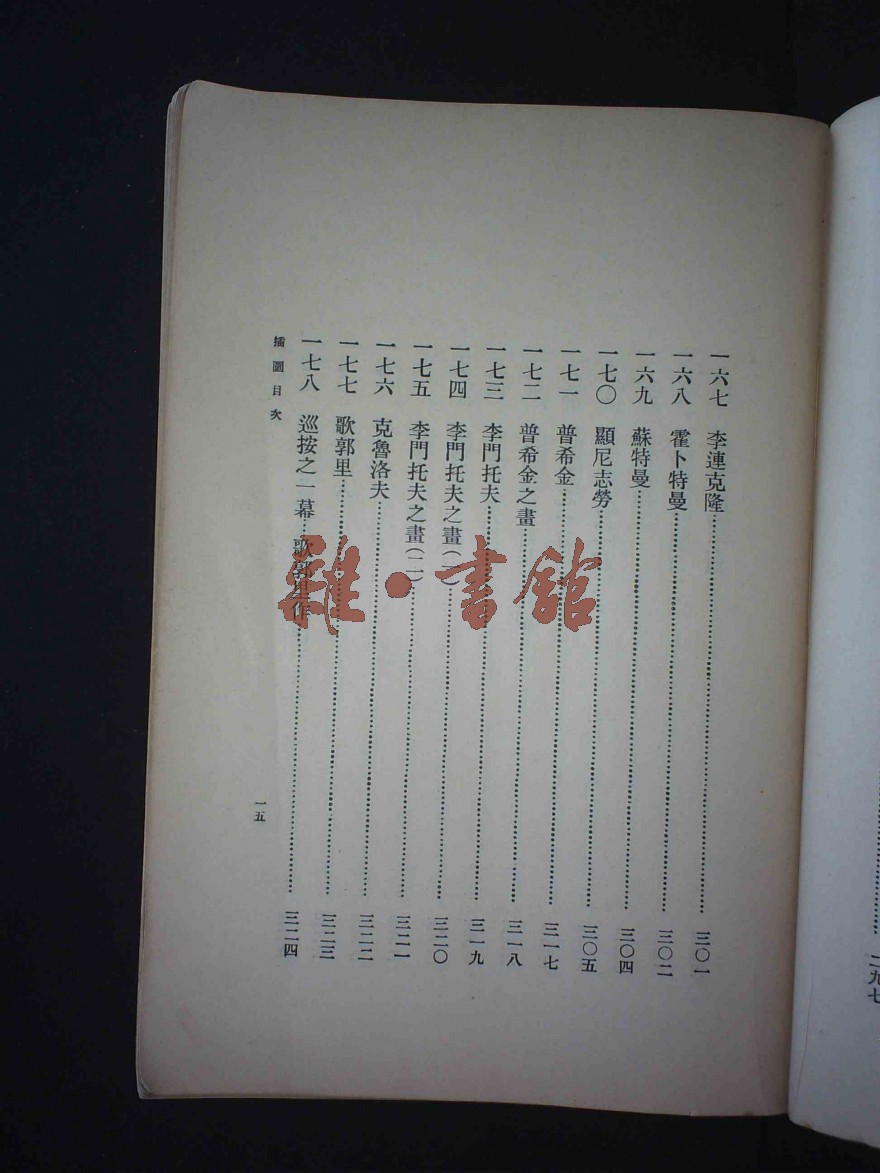 一六七 李連克隆……三〇一
一六八 霍卜特曼……三〇二
一六九 蘇特曼……三〇四
一七〇 顯尼志勞……三〇五
一七一 普希金……三一七
一七二 普希金之畫……三一八
一七三 李門托夫……三一九
一七四 李門托夫之畫(一)……三二〇
一七五 李門托夫之畫(二)……三二一
一七六 克魯洛夫……三二二
一七七 歌郭里……三二三
一七八 巡按之一幕 歌郭里作……三二四
插圖目次
一五
二九七
雜·書館